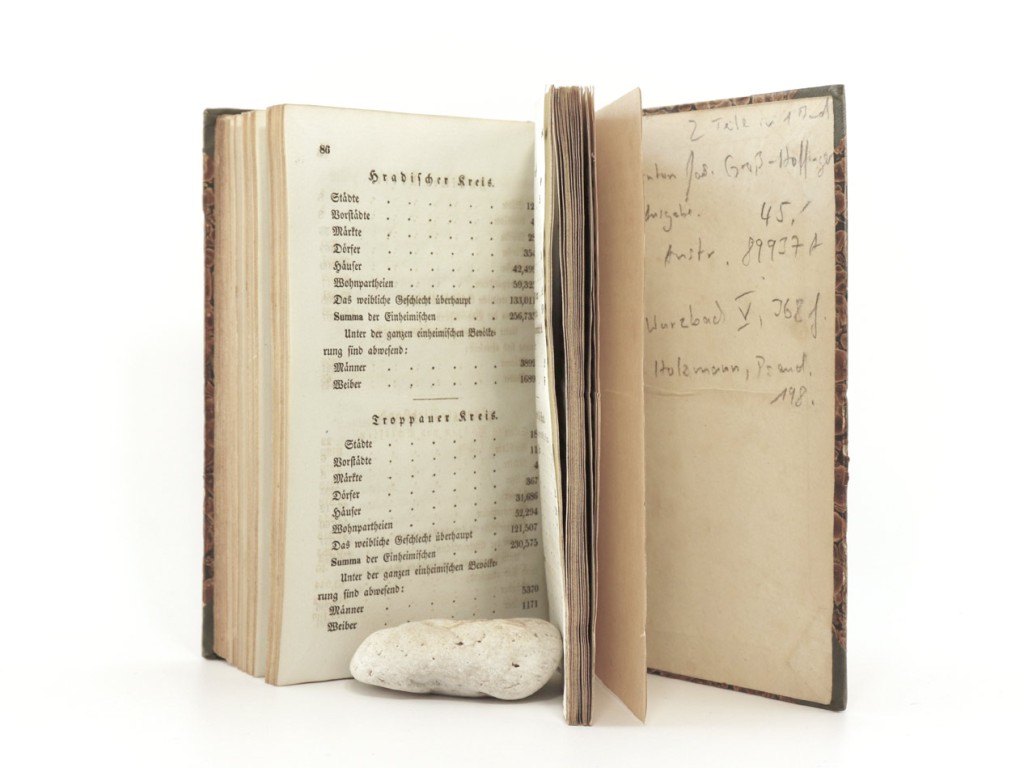 86
Hradischer Kreis.
Städte . . . . . .
Vorstädte . . . . . .
Märkte . . . . . .
Dörfer . . . . . .
Häuser . . . . . .
Wohnpartheien . . . . .
Das weibliche Geschlecht überhaupt .
Summa der Einheimischen . . .
Unter der ganzen einheimischen Bevölke-
rung sind abwesend:
Männer . . . . . .
Weiber . . . . . .
Troppauer Kreis.
Städte . . . . . .
Vorstädte . . . . . .
Märkte . . . . . . 4
Dörfer . . . . . . 367
Häuser . . . . . . 31,686
Wohnpartheien . . . . . 52,294
Das weibliche Geschlecht überhaupt . 121,507
Summa der Einheimischen . . . 230,575
Unter der ganzen einheimischen Bevölke-
rung sind abwesend:
Männer . . . . . . 5370
Weiber 1171
2 Teile in 1 Band
Jos. Groß-Hoffinger
45,-
89937 A
Wurzbach V, 368 f.
Holzmann, Pseud.
198.